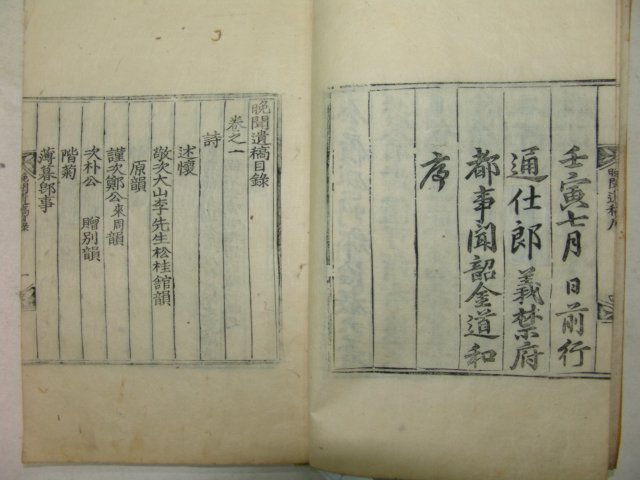 壬寅七月 日前行
通仕郎義禁府
都事聞韶金道和
序
晩聞遺稿目錄
卷之一
詩
述懷
敬次大山李先生松桂舘韻
原韻
謹次鄭公來周韻
次朴公 贈別韻
階菊
薄暮郎事